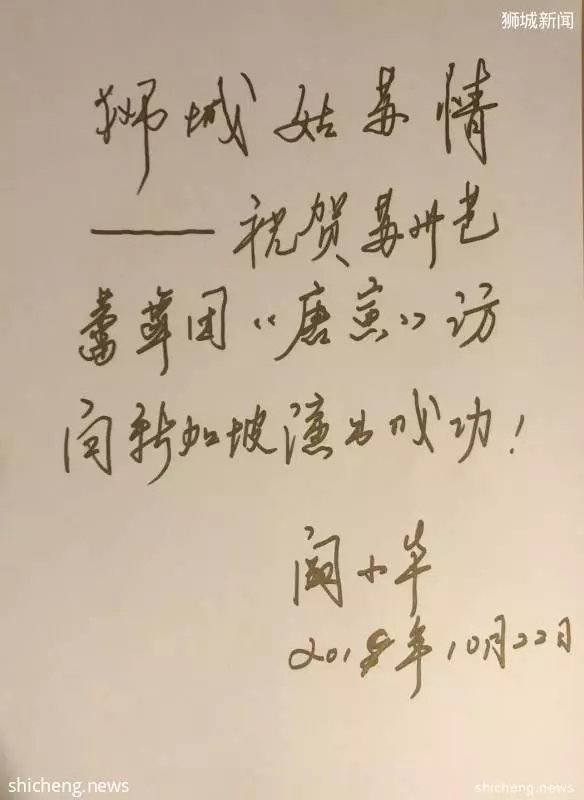 狮城新闻
狮城姑苏情
——祝贺苏州芭
蕾舞团《唐寅》访
问新加坡演出成功!
阙小华
2018年10月22日
shicheng.news
shicheng.news